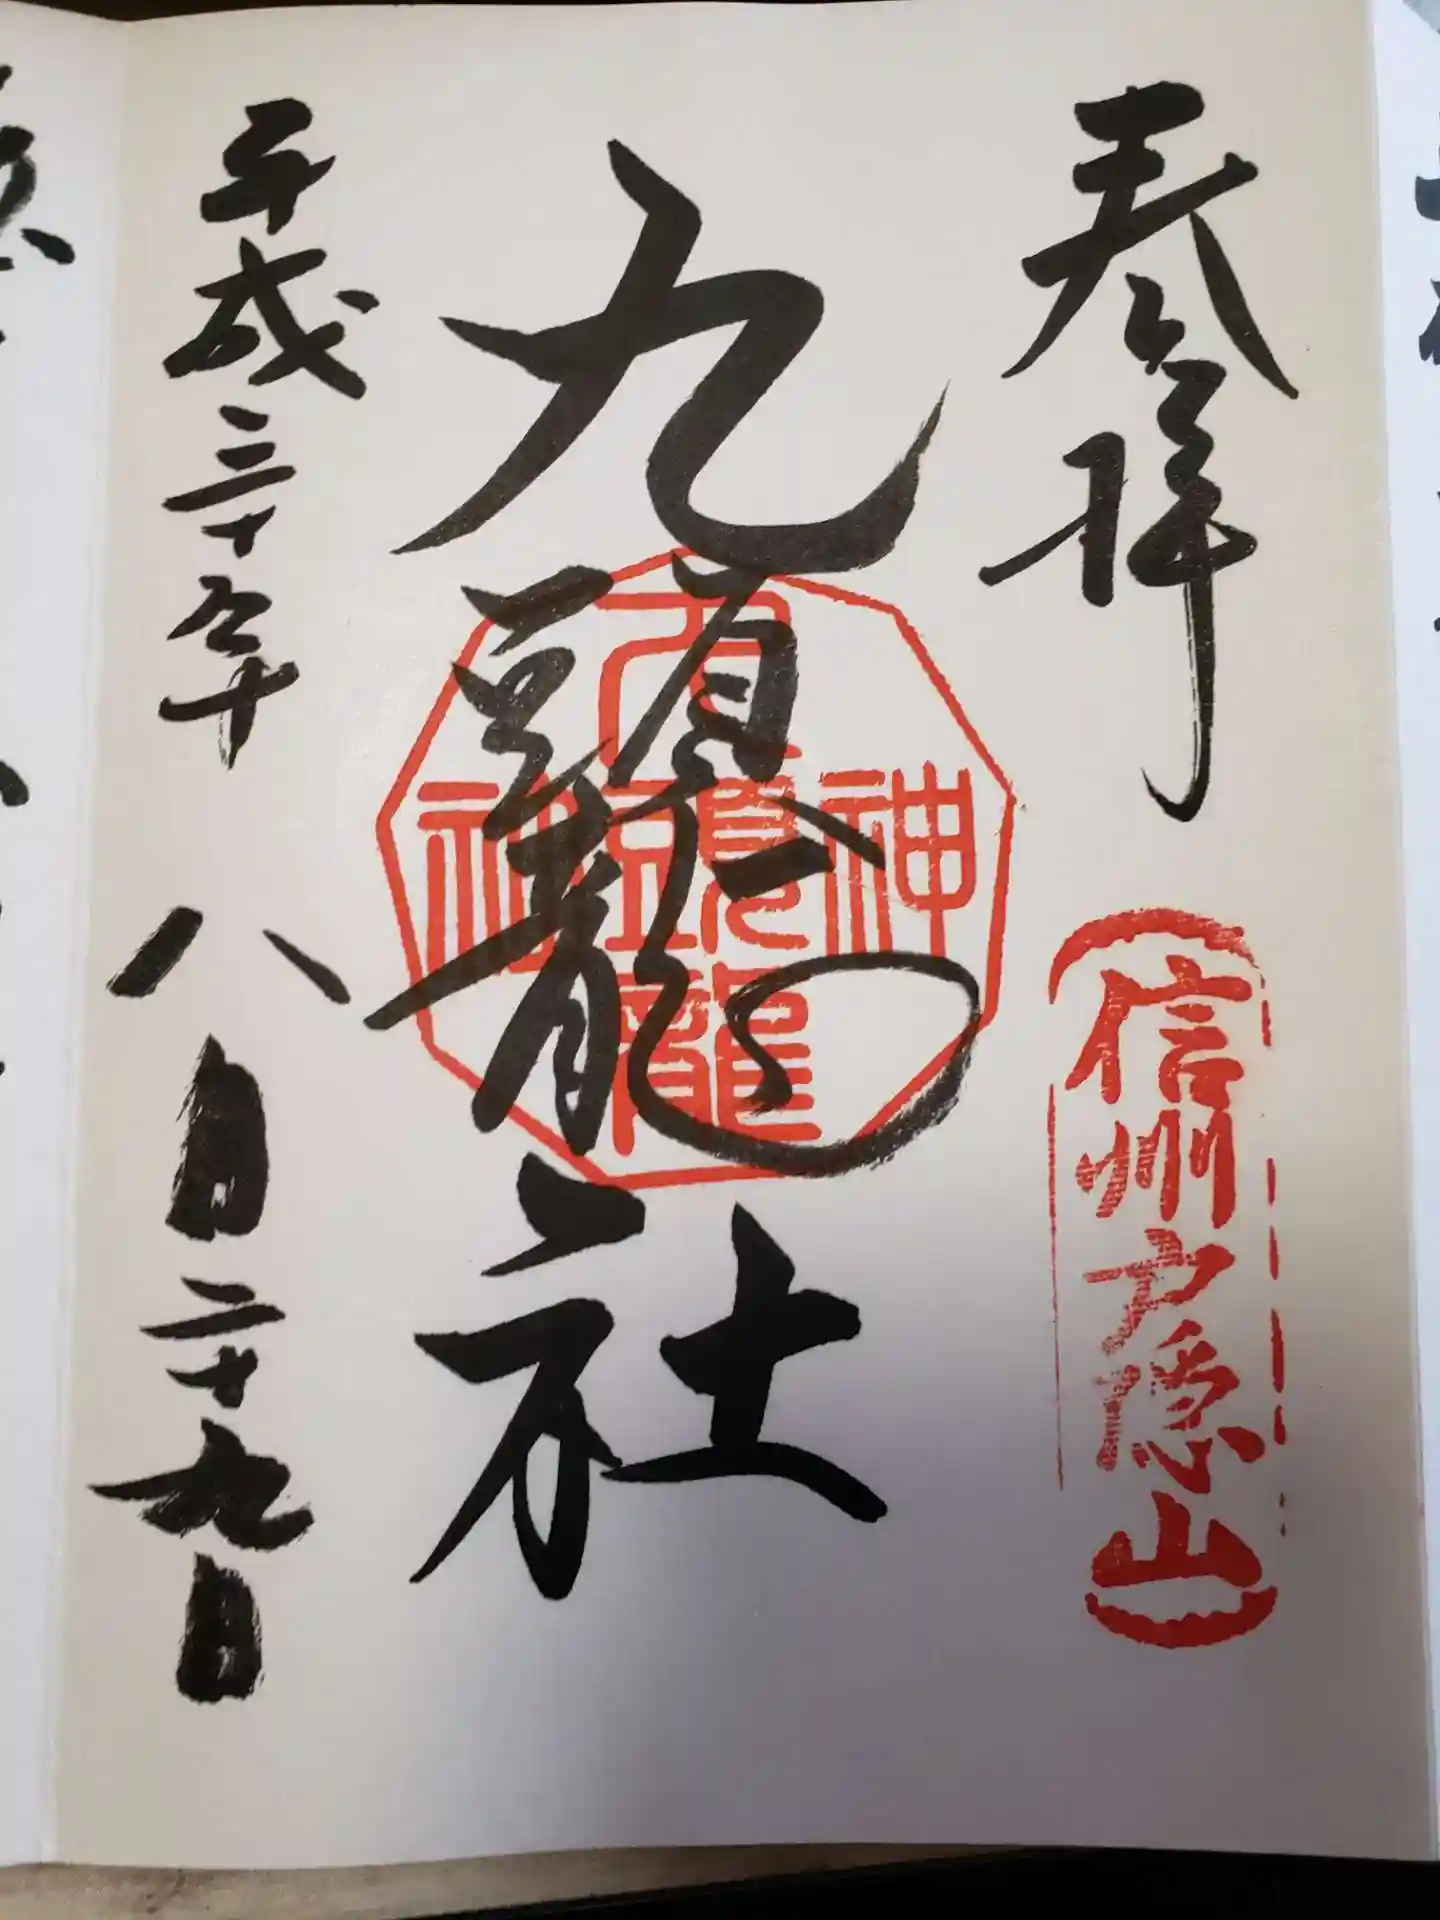 奉拝
信州戸隠山
九頭龍社
九頭龍神社
平成三十年八月二十九日